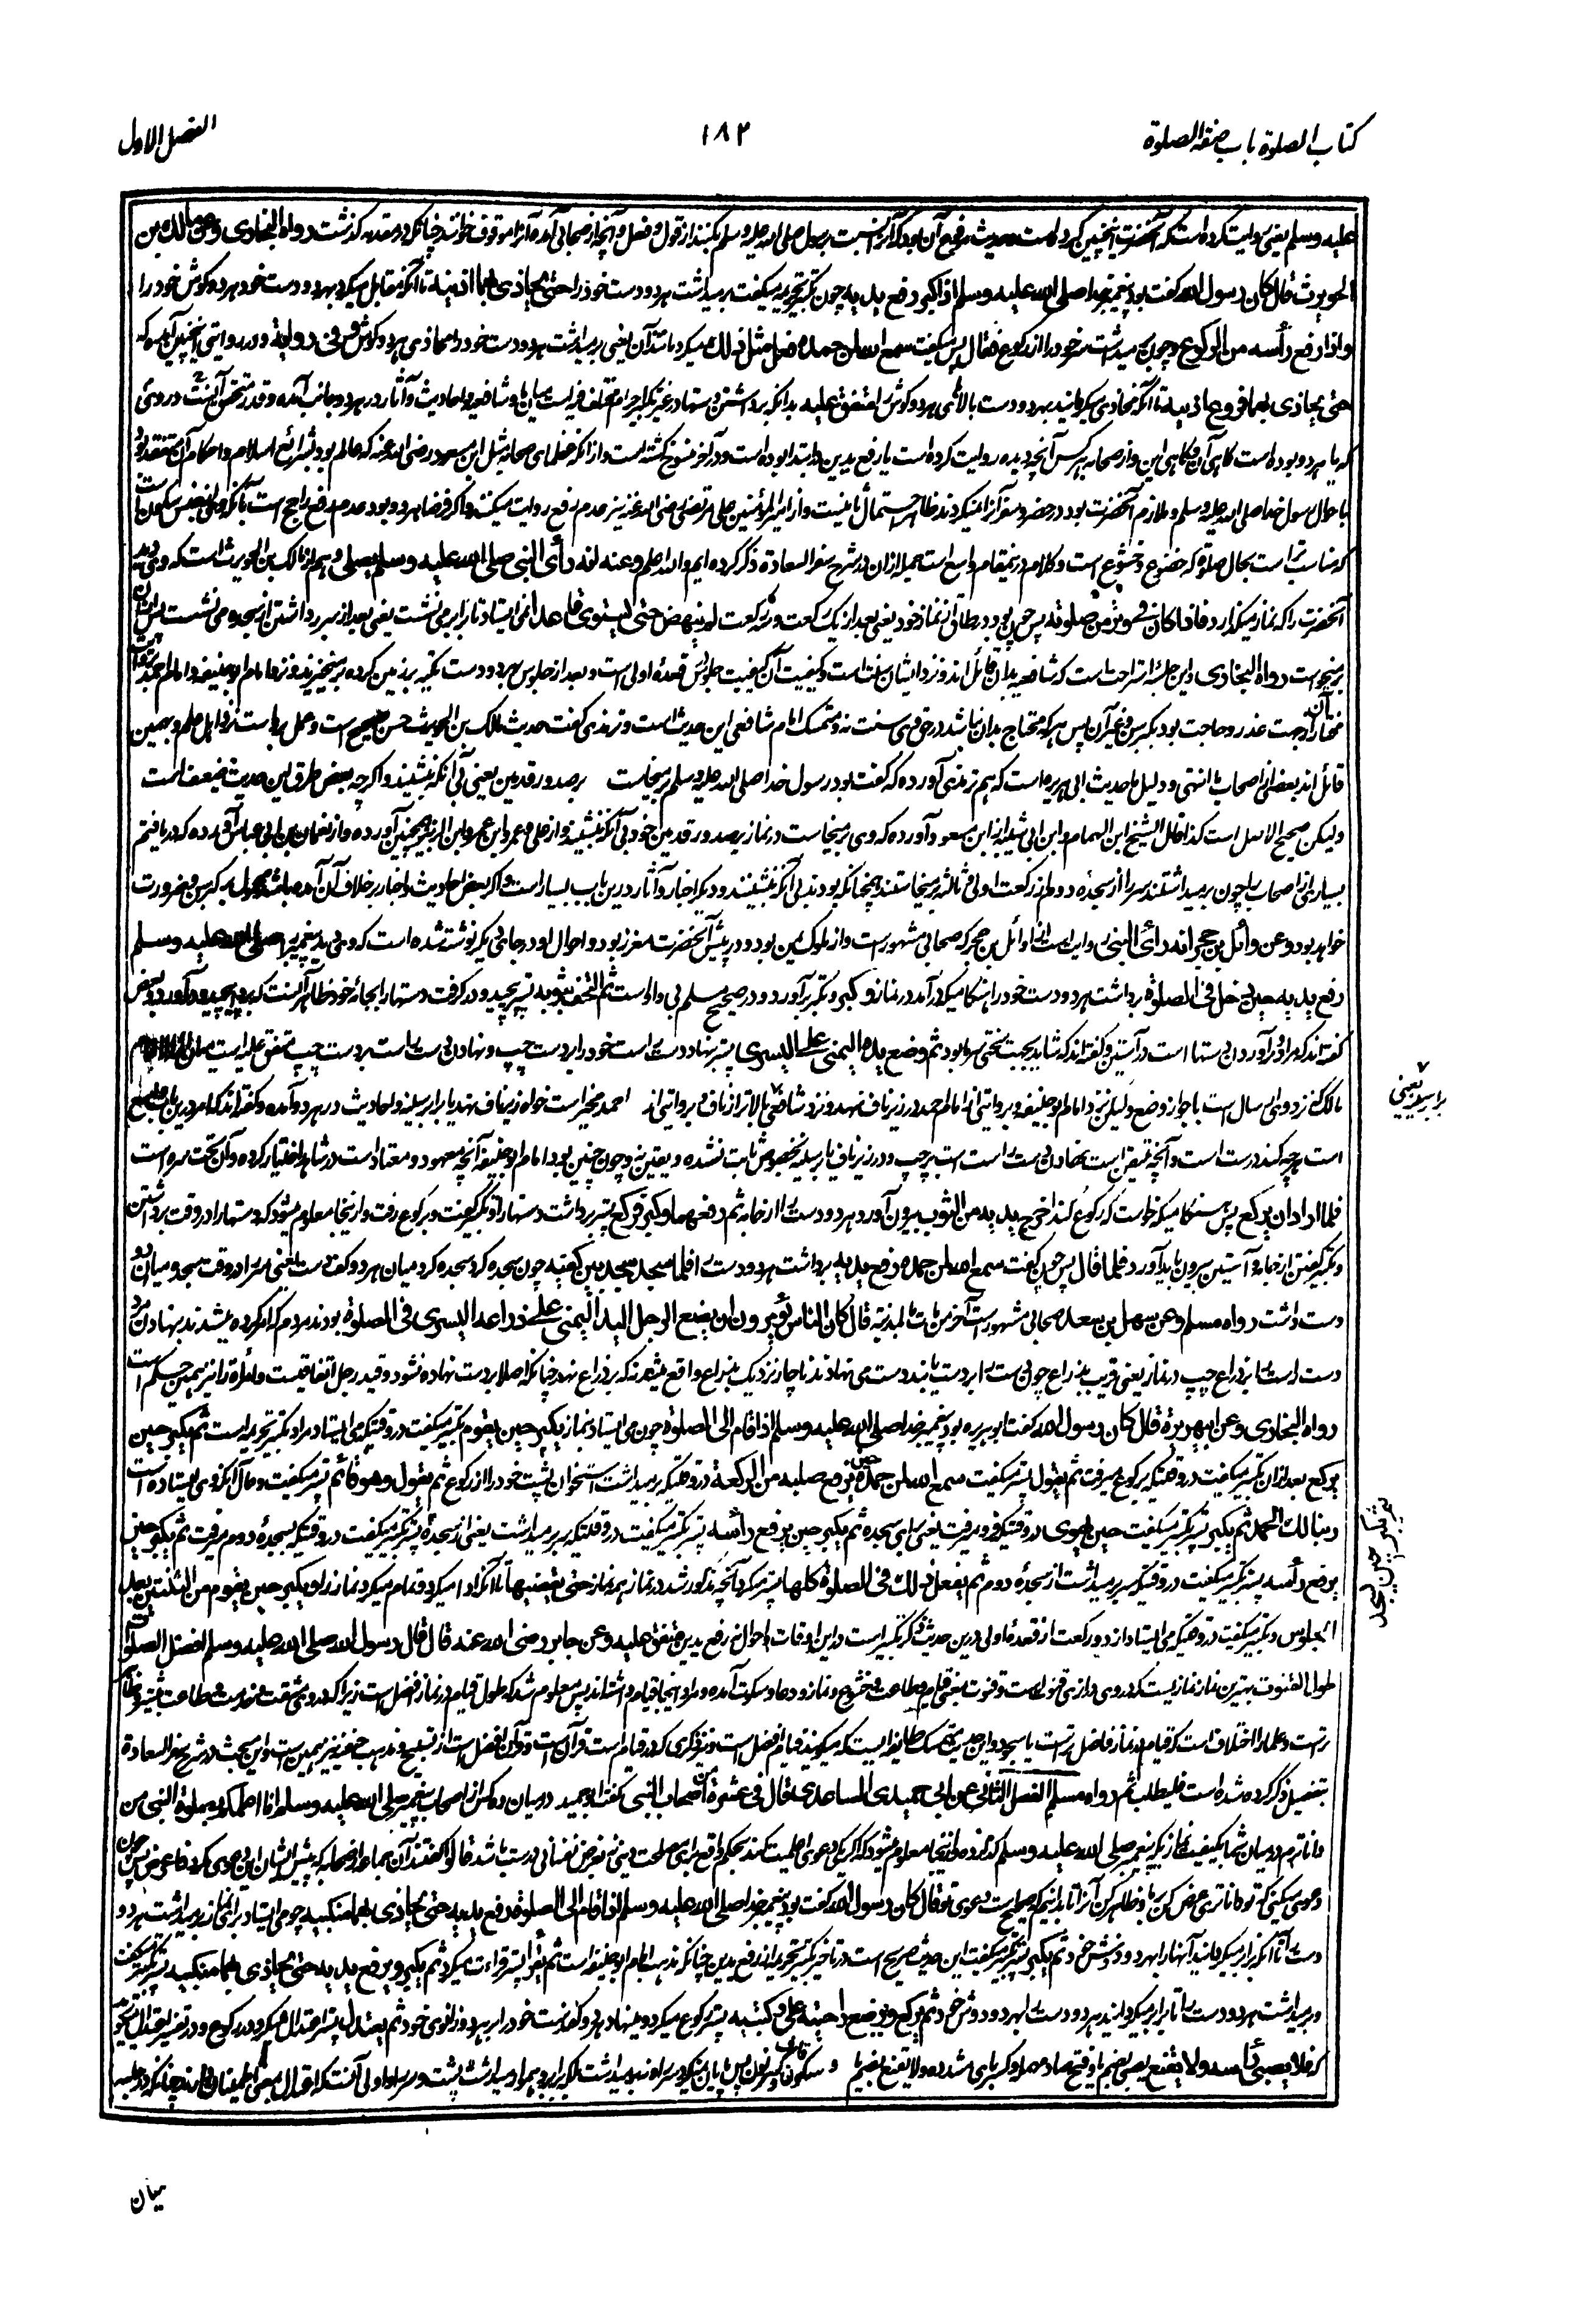 كتاب الصلوة باب صفة الصلوة
١٨٢
الفصل الاول
عليه وسلم یعنی روایت کرده است که آنحضرت اینچنین کرده است وحدیث مرفوع آن بود که آنرا نسبت برسول صلی الله علیه وسلم بکنند از قول و فعل و آنچه از صحابی آمده آنرا موقوف خوانند چنانکه در مقدمه گذشت رواه البخاری وعن مالك بن
الحويرث قال كان رسول الله گفت بود پیغمبر خدا صلى الله عليه وسلم اذا كبر رفع يديه چون تکبیر تحریمه میگفت برمیداشت هر دو دست خود را حتى يحاذى بهما اذنيه تا آنکه مقابل میکرد بهر دو دست خود هر دو گوش خود را
واذا رفع رأسه من الركوع وچون برمیداشت سر خود را از رکوع فقال پس میگفت سمع الله لمن حمده فعل مثل ذلك میکرد مانند آن یعنی برمیداشت هر دو دست خود را محاذی هر دو گوش وفى رواية ودر روایتی اینچنین آمده که
حتى يحاذى بهما فروع اذنيه تا آنکه محاذی میگردانید بهر دو دست بالای هر دو گوش را متفق عليه بدانکه برداشتن دستها در غیر تکبیر احرام مختلف فیه است میان ما و شافعیه و احادیث و آثار در هر دو جانب آمده و قدر متحقق آنست
که یا هر دو بوده است گاهی آن و گاهی این و از صحابه هر کس آنچه دیده روایت کرده است یا رفع یدین در ابتدا بوده است و در آخر منسوخ گشته است و از آنکه فقهای صحابه مثل ابن مسعود رضی الله عنه که عالم بود بشرائع اسلام و احکام آن
با حال رسول خدا صلی الله علیه وسلم و ملازم آنحضرت بود در حضر و سفر آنرا نمیکردند ظاهر احتمال ثانیست و از امیر المؤمنین علی مرتضی رضی الله عنه نیز عدم رفع روایت میکنند و اگر فرضا هر دو بود عدم رفع راجح است
که مناسب تر است بحال صلوة که خضوع و خشوع است و کلام درینمقام واسع است جمله ازان در شرح سفر السعادة ذکر کرده ایم والله اعلم وعنه انه رأى النبى صلى الله عليه وسلم يصلى وهم از مالک بن الحویرث است که وی
آنحضرت را که نماز میگذارد فاذا كان فى وتر من صلوته پس چون بود در طاقی از نماز خود یعنی بعد از یک رکعت و سه رکعت لم ينهض حتى يستوى قاعدا نمی ایستاد تا برابر می نشست یعنی بعد از سر برداشتن از سجده می نشست
برمیخواست رواه البخارى و این جلسه استراحت است که شافعیه بدان قائل اند و نزد ایشان سنت است و کیفیت آن کیفیت جلوس قعده اولی است و بعد از جلوس بهر دو دست تکیه بر زمین کرده برمیخیزند و نزد امام ابو حنیفه و امام احمد
مختار آن از جهت عذر و حاجت بود بکبر سن و غیر آن پس هر که محتاج بدان نباشد در حق وی سنت نه و متمسک امام شافعی این حدیث است و ترمذی گفت حدیث مالک بن الحویرث حسن صحیح است و عمل بر ین است نزد اهل علم و بهمین
قائل اند بعض از اصحاب ما انتهی و دلیل ما حدیث ابی هریره است که هم ترمذی آورده که گفت بود رسول خدا صلی الله علیه وسلم برمیخاست برصدور قدمین یعنی بی آنکه بنشیند و اگرچه بعض طرق این حدیث ضعیف است
ولیکن صحیح الاصل است کذا قال الشیخ ابن الهمام و ابن ابی شیبه از ابن مسعود آورده که وی برمیخاست در نماز برصدور قدمین خود بی آنکه بنشیند و از علی و عمر و ابن عمر و ابن الزبیر همچنین آورده و از نعمان بن ابی عیاش آورده که دریافتم
بسیاری از اصحاب را چون برمیداشتند سر را از سجده دوم از رکعت اولی و ثالثه برمیخاستند همچنانکه بودند بی آنکه بنشینند و دیگر اخبار و آثار درین باب بسیار است و اگر بعض احادیث و اخبار برخلاف آن آمده باشد محمول بر کبر سن و ضرورت
خواهد بود وعن وائل بن حجر انه رأى النبى روایت است از وائل بن حجر که صحابی مشهور است و از ملوک یمن بود و در پیش آنحضرت معزز بود و احوال او در جای دیگر نوشته شده است که وی دید پیغمبر صلى الله عليه وسلم
رفع يديه حين دخل فى الصلوة برداشت هر دو دست خود را هنگامیکه درآمد در نماز وكبر و تکبیر برآورد و در صحیح مسلم بی واو است ثم التحف بثوبه پستر پیچید و درگرفت دستها را بجامه خود ظاهر آنست که
گفته اند که مراد درآوردن دستها است در آستین و گفته اند که شاید بجهت سختی سرما بود ثم وضع يده اليمنى على اليسرى پستر نهاد دست راست خود را بر دست چپ و نهادن دست راست بر دست چپ متفق علیه است میان
مالک نزد وی ارسال است با جواز وضع ولیکن نزد امام ابو حنیفه و بروایتی از امام احمد در زیر ناف نهد و نزد شافعی بالاتر از ناف و بروایتی از احمد مخیر است خواه زیر ناف نهد یا برابر سینه و احادیث در هر دو آمده و گفته اند که امر درین باب
است هرچه کند درست است و آنچه متیقن است نهادن دست راست است بر چپ و در زیر ناف یا برسینه بخصوص ثابت نشده و یقین نه و چون چنین بود امام ابو حنیفه آنچه معهود و معتاد است در شاهد اختیار کرده و آن تحت سره است
فلما اراد ان يركع پس هنگامیکه خواست که رکوع کند اخرج يديه من الثوب بیرون آورد هر دو دست را از جامه ثم رفعهما وكبر فركع پستر برداشت دستها را و تکبیر گفت و برکوع رفت و ازینجا معلوم میشود که دستها را در وقت برداشتن
و تکبیر گفتن از جامه و آستین بیرون باید آورد فلما قال پس چون گفت سمع الله لمن حمده رفع يديه برداشت هر دو دست را فلما سجد سجد بين كفيه چون سجده کرد سجده کرد میان هر دو کف دست یعنی سر را در وقت سجود میان
دست داشت رواه مسلم وعن سهل بن سعد صحابی مشهور است آخر من مات بالمدینة قال كان الناس يؤمرون ان يضع الرجل اليد اليمنى على ذراعه اليسرى فى الصلوة بودند مردم که امر کرده میشدند بنهادن مرد
دست راست را بر ذراع چپ در نماز یعنی قریب بذراع چون دست را بر دست یا بند دست می نهادند ناچار نزدیک بذراع واقع میشد نه که بر ذراع نهند چنانکه اصلا بر دست نهاده نشود و قید رجل اتفاقیست و امرأة را نیز همین حکم است
رواه البخارى وعن ابى هريرة قال كان رسول الله گفت ابو هریره بود پیغمبر خدا صلى الله عليه وسلم اذا قام الى الصلوة چون می ایستاد بنماز يكبر حين يقوم تکبیر میگفت در وقتیکه می ایستاد مراد تکبیر تحریمه است ثم يكبر حين
يركع بعد ازان تکبیر میگفت در وقتیکه برکوع میرفت ثم يقول پستر میگفت سمع الله لمن حمده حين يرفع صلبه من الركعة در وقتیکه برمیداشت استخوان پشت خود را از رکوع ثم يقول وهو قائم پستر میگفت و حال آنکه وی ایستاده است
ربنا لك الحمد ثم يكبر پستر تکبیر میگفت حين يهوى در وقتیکه فرو میرفت یعنی برای سجده ثم يكبر حين يرفع رأسه پستر تکبیر میگفت در وقتیکه سر برمیداشت یعنی از سجده پستر تکبیر میگفت در وقتیکه بسجده دوم میرفت ثم يكبر حين
يرفع رأسه پستر تکبیر میگفت در وقتیکه سر برمیداشت از سجده دوم ثم يفعل ذلك فى الصلوة كلها پستر میکرد آنچه مذکور شد در نماز همه نماز حتى يقضيها تا آنکه ادا میکرد و تمام میکرد نماز را ويكبر حين يقوم من الثنتين بعد
الجلوس و تکبیر میگفت در وقتیکه می ایستاد از دو رکعت از قعده اولی درین حدیث ذکر تکبیر است در این اوقات و احوال نه رفع یدین متفق عليه وعن جابر رضى الله عنه قال قال رسول الله صلى الله عليه وسلم افضل الصلوة
طول القنوت بهترین نماز نماز یست که در وی درازی قنوت است و قنوت بمعنی قیام و طاعت و خشوع و نماز و دعا و سکوت آمده و مراد اینجا قیام داشته اند پس معلوم شد که طول قیام در نماز افضل است زیراکه در وی مشقت
تر است و علما را اختلاف است که قیام در نماز فاضل تر است یا سجود و این حدیث متمسک طائفه ایست که میگویند قیام افضل است و نیز ذکری که در قیام است قرآن است و قرآن افضل است از تسبیح و مذهب حنفیه نیز همین است و این مبحث در شرح سفر السعادة
بتفصیل ذکر کرده شده است فلیطلب ثم رواه مسلم الفصل الثانى عن ابى حميد الساعدى قال فى عشرة من اصحاب النبى گفت ابو حمید در میان ده کس از اصحاب پیغمبر صلى الله عليه وسلم انا اعلمكم بصلوة النبى من
دانا ترم در میان شما بکیفیت نماز پیغمبر صلى الله عليه وسلم ازینجا معلوم میشود که اگر یکی دعوی اعلمیت کند بحکم واقع برای مصلحت دینی نه بغرض نفسانی درست باشد قالوا گفتند آن جماعه از صحابه که پیش ایشان این دعوی کرد فاعرض پس چون
دعوی میکنی که تو دانا تری عرض کن بر ما و ظاهر کن آنرا تا بدانیم که صحیح است دعوی تو قال كان رسول الله گفت بود پیغمبر خدا صلى الله عليه وسلم اذا قام الى الصلوة رفع يديه حتى يحاذى بهما منكبيه چون می ایستاد برای نماز برمیداشت هر دو
دست را تا آنکه برابر میگردانید آنها را بهر دو دوش خود ثم يكبر پستر تکبیر میگفت این حدیث صریح است در تاخیر تکبیر تحریمه از رفع یدین چنانکه مذهب امام ابو حنیفه است ثم يقرأ پستر قراءت میکرد ثم يكبر ويرفع يديه حتى يحاذى بهما منكبيه پستر تکبیر میگفت
و برمیداشت هر دو دست را تا برابر میگردانید هر دو دست را بهر دو دوش خود ثم يركع ويضع راحتيه على ركبتيه پستر رکوع میکرد و مینهاد هر دو کف دست خود را بر هر دو زانوی خود ثم يعتدل پستر اعتدال میکرد در رکوع و در تفسیر اعتدال میگوید
که فلا يصبى رأسه ولا يقنع
میان
برابر سینه یعنی
ثم يكبر حين يسجد